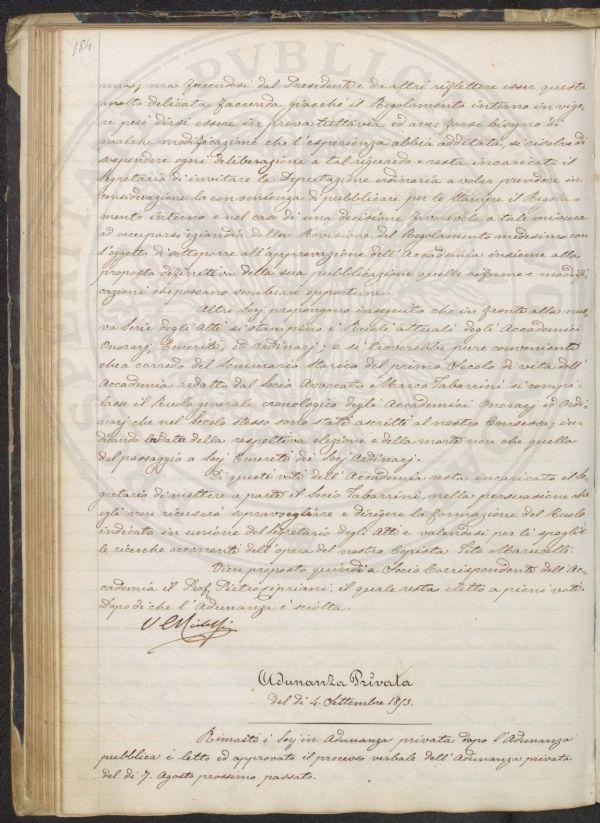 184
mia; ma facendosi dal Presidente e da altri riflettere esser questa
molto delicata faccenda giacchè il Regolamento interno in vigo-
re può dirsi essere in prova tuttavia ed aver forse bisogno di
qualche modificazione che l'esperienza abbia additata, si risolve di
sospendere ogni deliberazione a tal riguardo e resta incaricato il
Segretario di invitare la Deputazione ordinaria a voler prendere in
considerazione la convenienza di pubblicare per le stampe il Regola-
mento interno e nel caso di una decisione favorevole a tale misura
ad occuparsi eziandio della Revisione del Regolamento medesimo con
l'oggetto di sottoporre all'approvazione dell'Accademia insieme alla
proposta definitiva della sua pubblicazione quelle riforme e modifi-
cazioni che possano sembrare opportune.
Altri Socj propongono inseguito che in fronte alla nuo-
va Serie degli Atti si stampino i Ruoli attuali degli Accademici
Onorarj, Emeriti, ed Ordinarj; e si troverebbe pure conveniente
che a corredo del Sommario storico del primo Secolo di vita dell'
Accademia redatto dal Socio Avvocato Marco Tabarrini si compi-
lasse il Ruolo generale cronologico degli Accademici Onorarj ed Ordi-
narj che nel secolo stesso sono stati ascritti al nostro Consesso; in-
dicando la data della respettiva elezione e della morte non che quella
del passaggio a Socj Emeriti dei Socj Ordinarj.
Di questi voti dell'Accademia resta incaricato il Se-
gretario di mettere a parte il Socio Tabarrini, nella persuasione che
egli non ricuserà sopravvegliare e dirigere la formazione del Ruolo
indicato in unione del Segretario degli Atti e valendosi per li spogli e
le ricerche occorrenti dell'opera del nostro Copista Tito Marucelli.
Vien proposto quindi a Socio Corrispondente dell'Ac-
cademia il Prof. Pietro Cipriani, il quale resta eletto a pieni voti.
Dopo di che l'Adunanza è sciolta.
Adunanza Privata
del dì 4. Settembre 1853.
Rimasti i Socj in Adunanza privata dopo l'Adunanza
pubblica è letto ed approvato il processo verbale dell'Adunanza privata
del dì 7. Agosto prossimo passato.